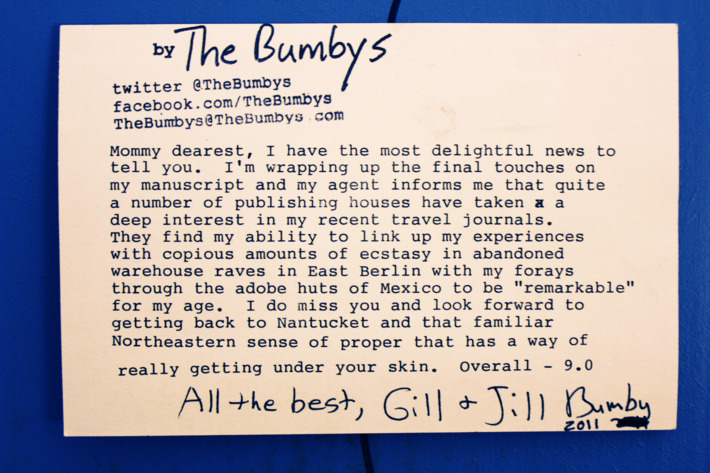 by The Bumbys
twitter @TheBumbys
facebook.com/TheBumbys
TheBumbys@TheBumbys.com
Mommy dearest, I have the most delightful news to
tell you.  I'm wrapping up the final touches on
my manuscript and my agent informs me that quite
a number of publishing houses have taken a
deep interest in my recent travel journals.
They find my ability to link up my experiences
with copious amounts of ecstasy in abandoned
warehouse raves in East Berlin with my forays
through the adobe huts of Mexico to be "remarkable"
for my age.  I do miss you and look forward to
getting back to Nantucket and that familiar
Northeastern sense of proper that has a way of
really getting under your skin.  Overall - 9.0
All the best, Gill & Jill Bumby
2011